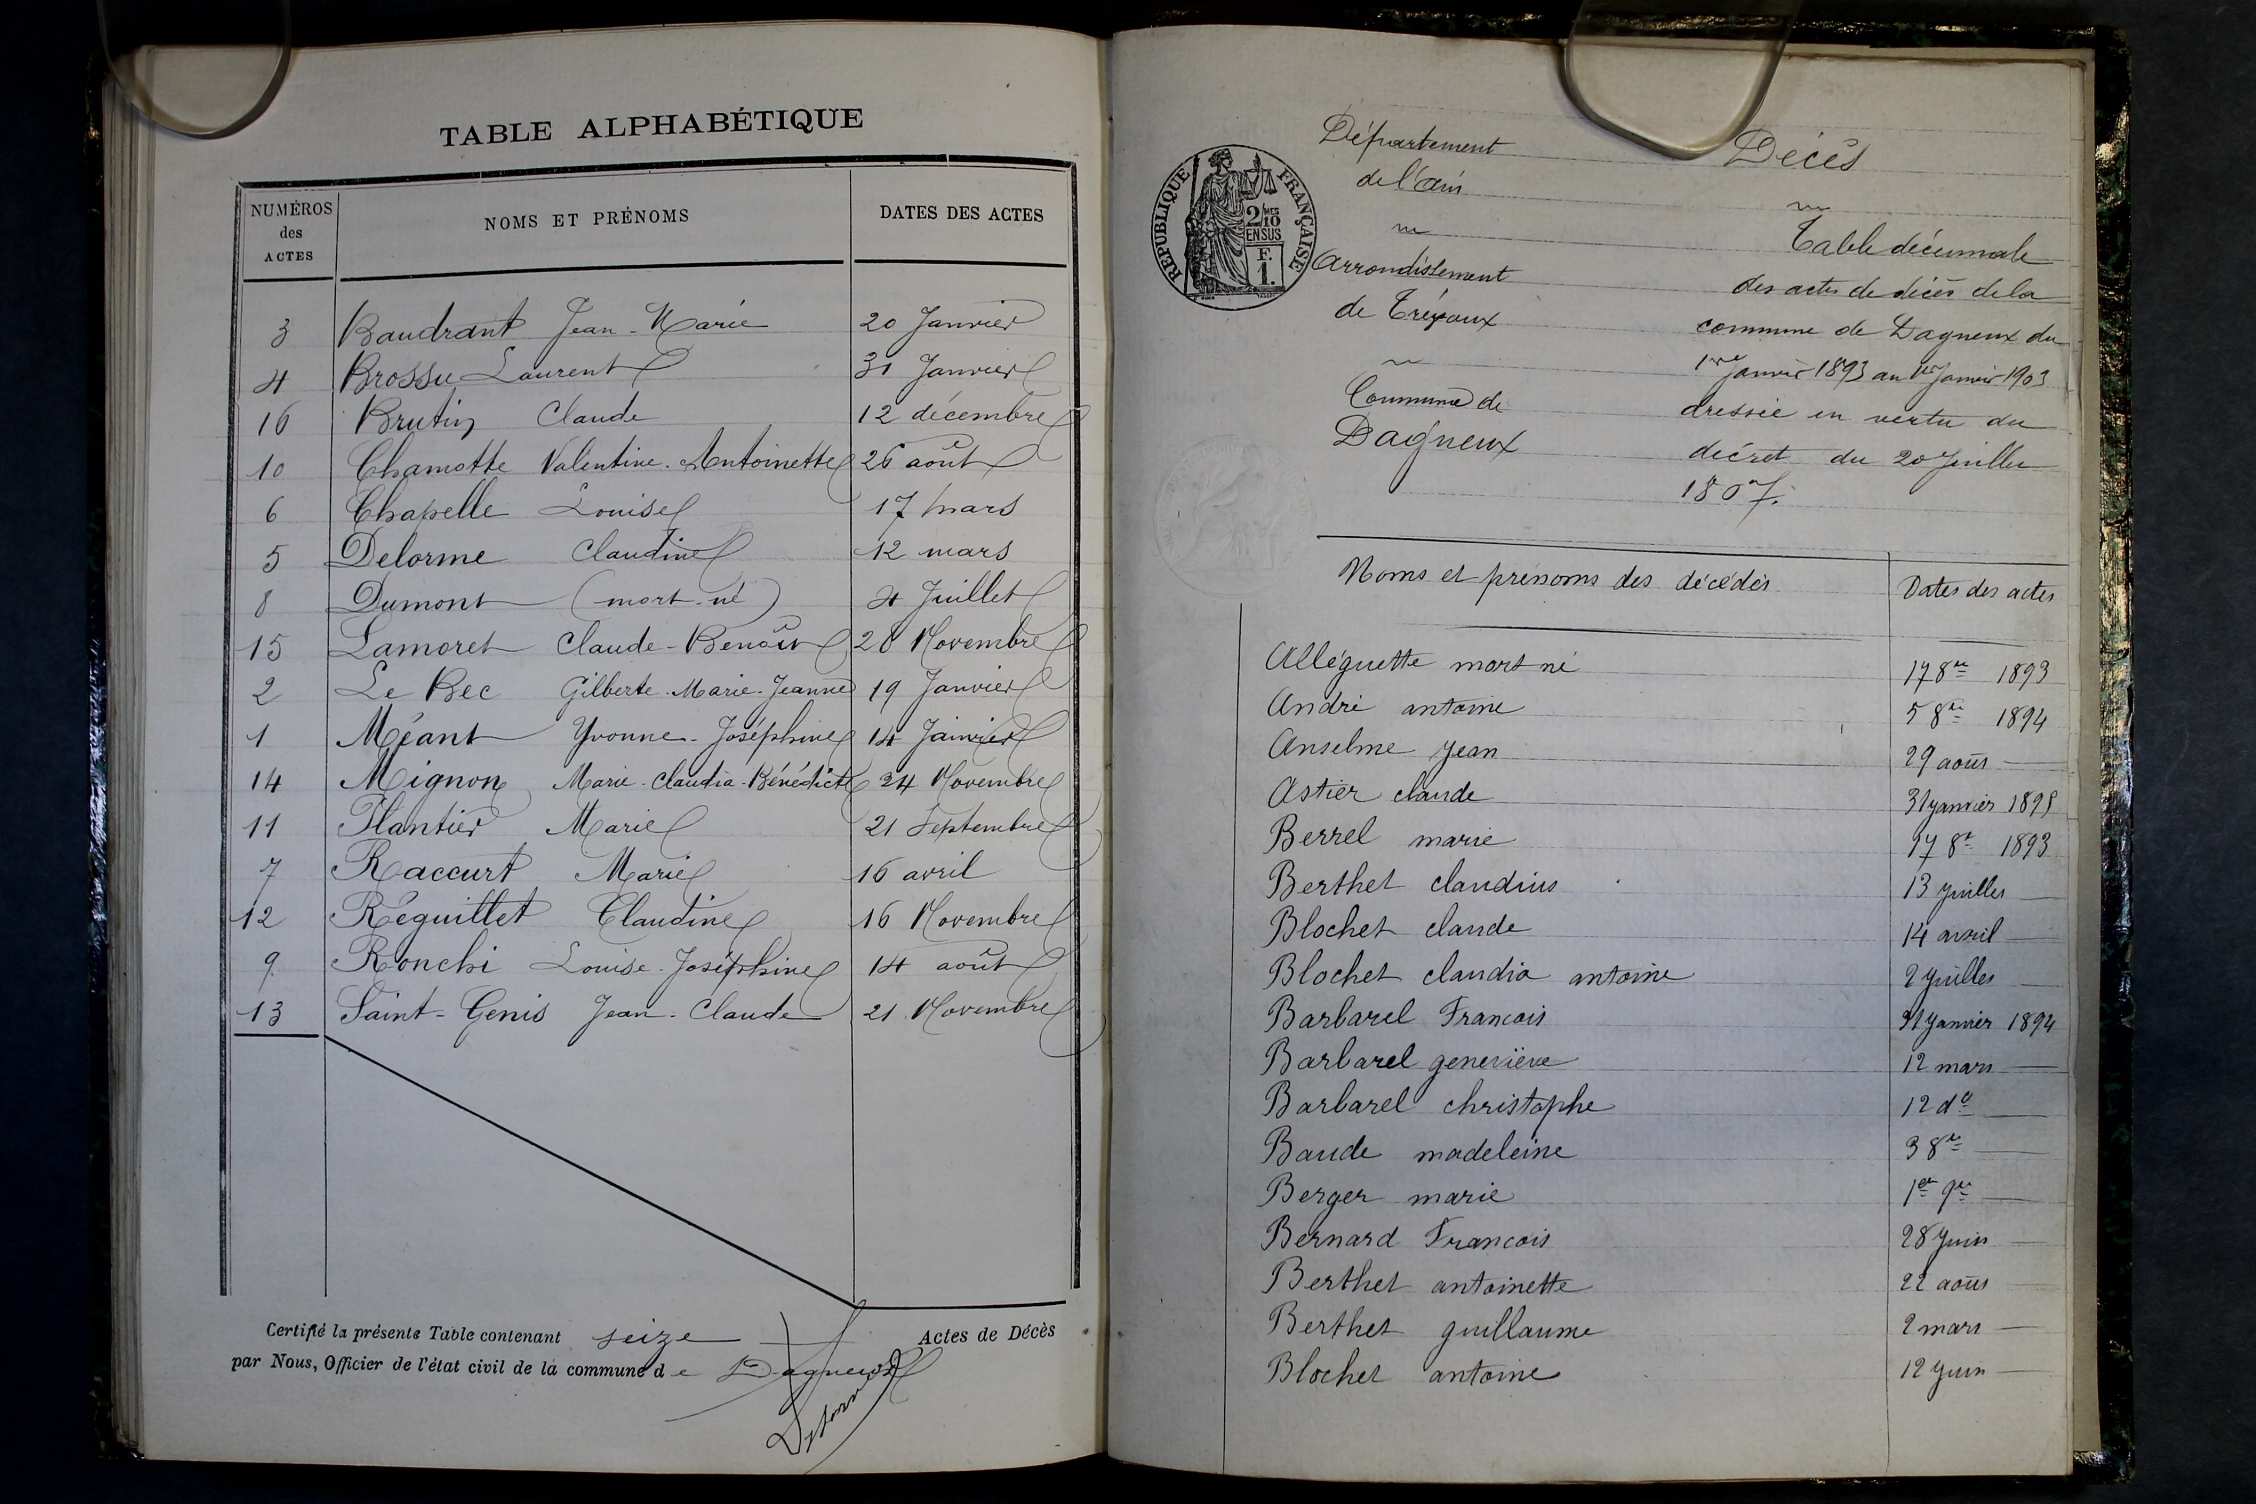 TABLE ALPHABÉTIQUE
NUMÉROS des ACTES NOMS ET PRÉNOMS DATES DES ACTES
3 Baudrant Jean-Marie 20 Janvier
4 Brossu Laurent 31 Janvier
16 Brutin Claude 12 décembre
10 Chamotte Valentine-Antoinette 26 août
6 Chapelle Louise 17 mars
5 Delorme Claudine 12 mars
8 Dumont (mort-né) 4 Juillet
15 Lamoret Claude-Benoît 28 Novembre
2 Le Bec Gilberte-Marie-Jeanne 19 Janvier
1 Méant Yvonne-Joséphine 14 Janvier
14 Mignon Marie-Claudia-Bénédicte 24 Novembre
11 Plantier Marie 21 Septembre
7 Raccurt Marie 16 avril
12 Réguillet Claudine 16 Novembre
9 Ronchi Louise-Joséphine 14 août
13 Saint-Genis Jean-Claude 21 Novembre
Certifié la présente Table contenant seize Actes de Décès
par Nous, Officier de l'état civil de la commune de Dagneux
REPUBLIQUE FRANÇAISE
2/10 MES
EN SUS
F.
1.
Département
de l'Ain
Arrondissement
de Trévoux
Commune de
Dagneux
Décès
Table décennale
des actes de décès de la
commune de Dagneux du
1er Janvier 1893 au 1er Janvier 1903
dressée en vertu du
décret du 20 Juillet
1807.
Noms et prénoms des décédés Dates des actes
Alléguette mort né 17 8re 1893
André antoine 5 8re 1894
Anselme Jean 29 août —
Astier claude 31 janvier 1895
Berrel marie 17 8re 1893
Berthet claudius 13 juillet —
Blochet claude 14 avril —
Blochet claudia antoine 2 juillet —
Barbarel Francois 31 Janvier 1894
Barbarel geneviève 12 mars —
Barbarel christophe 12 do —
Baude madeleine 3 8re —
Berger marie 1er 9re —
Bernard Francois 28 Juin —
Berthet antoinette 22 août —
Berthet guillaume 2 mars —
Blochet antoine 12 juin —